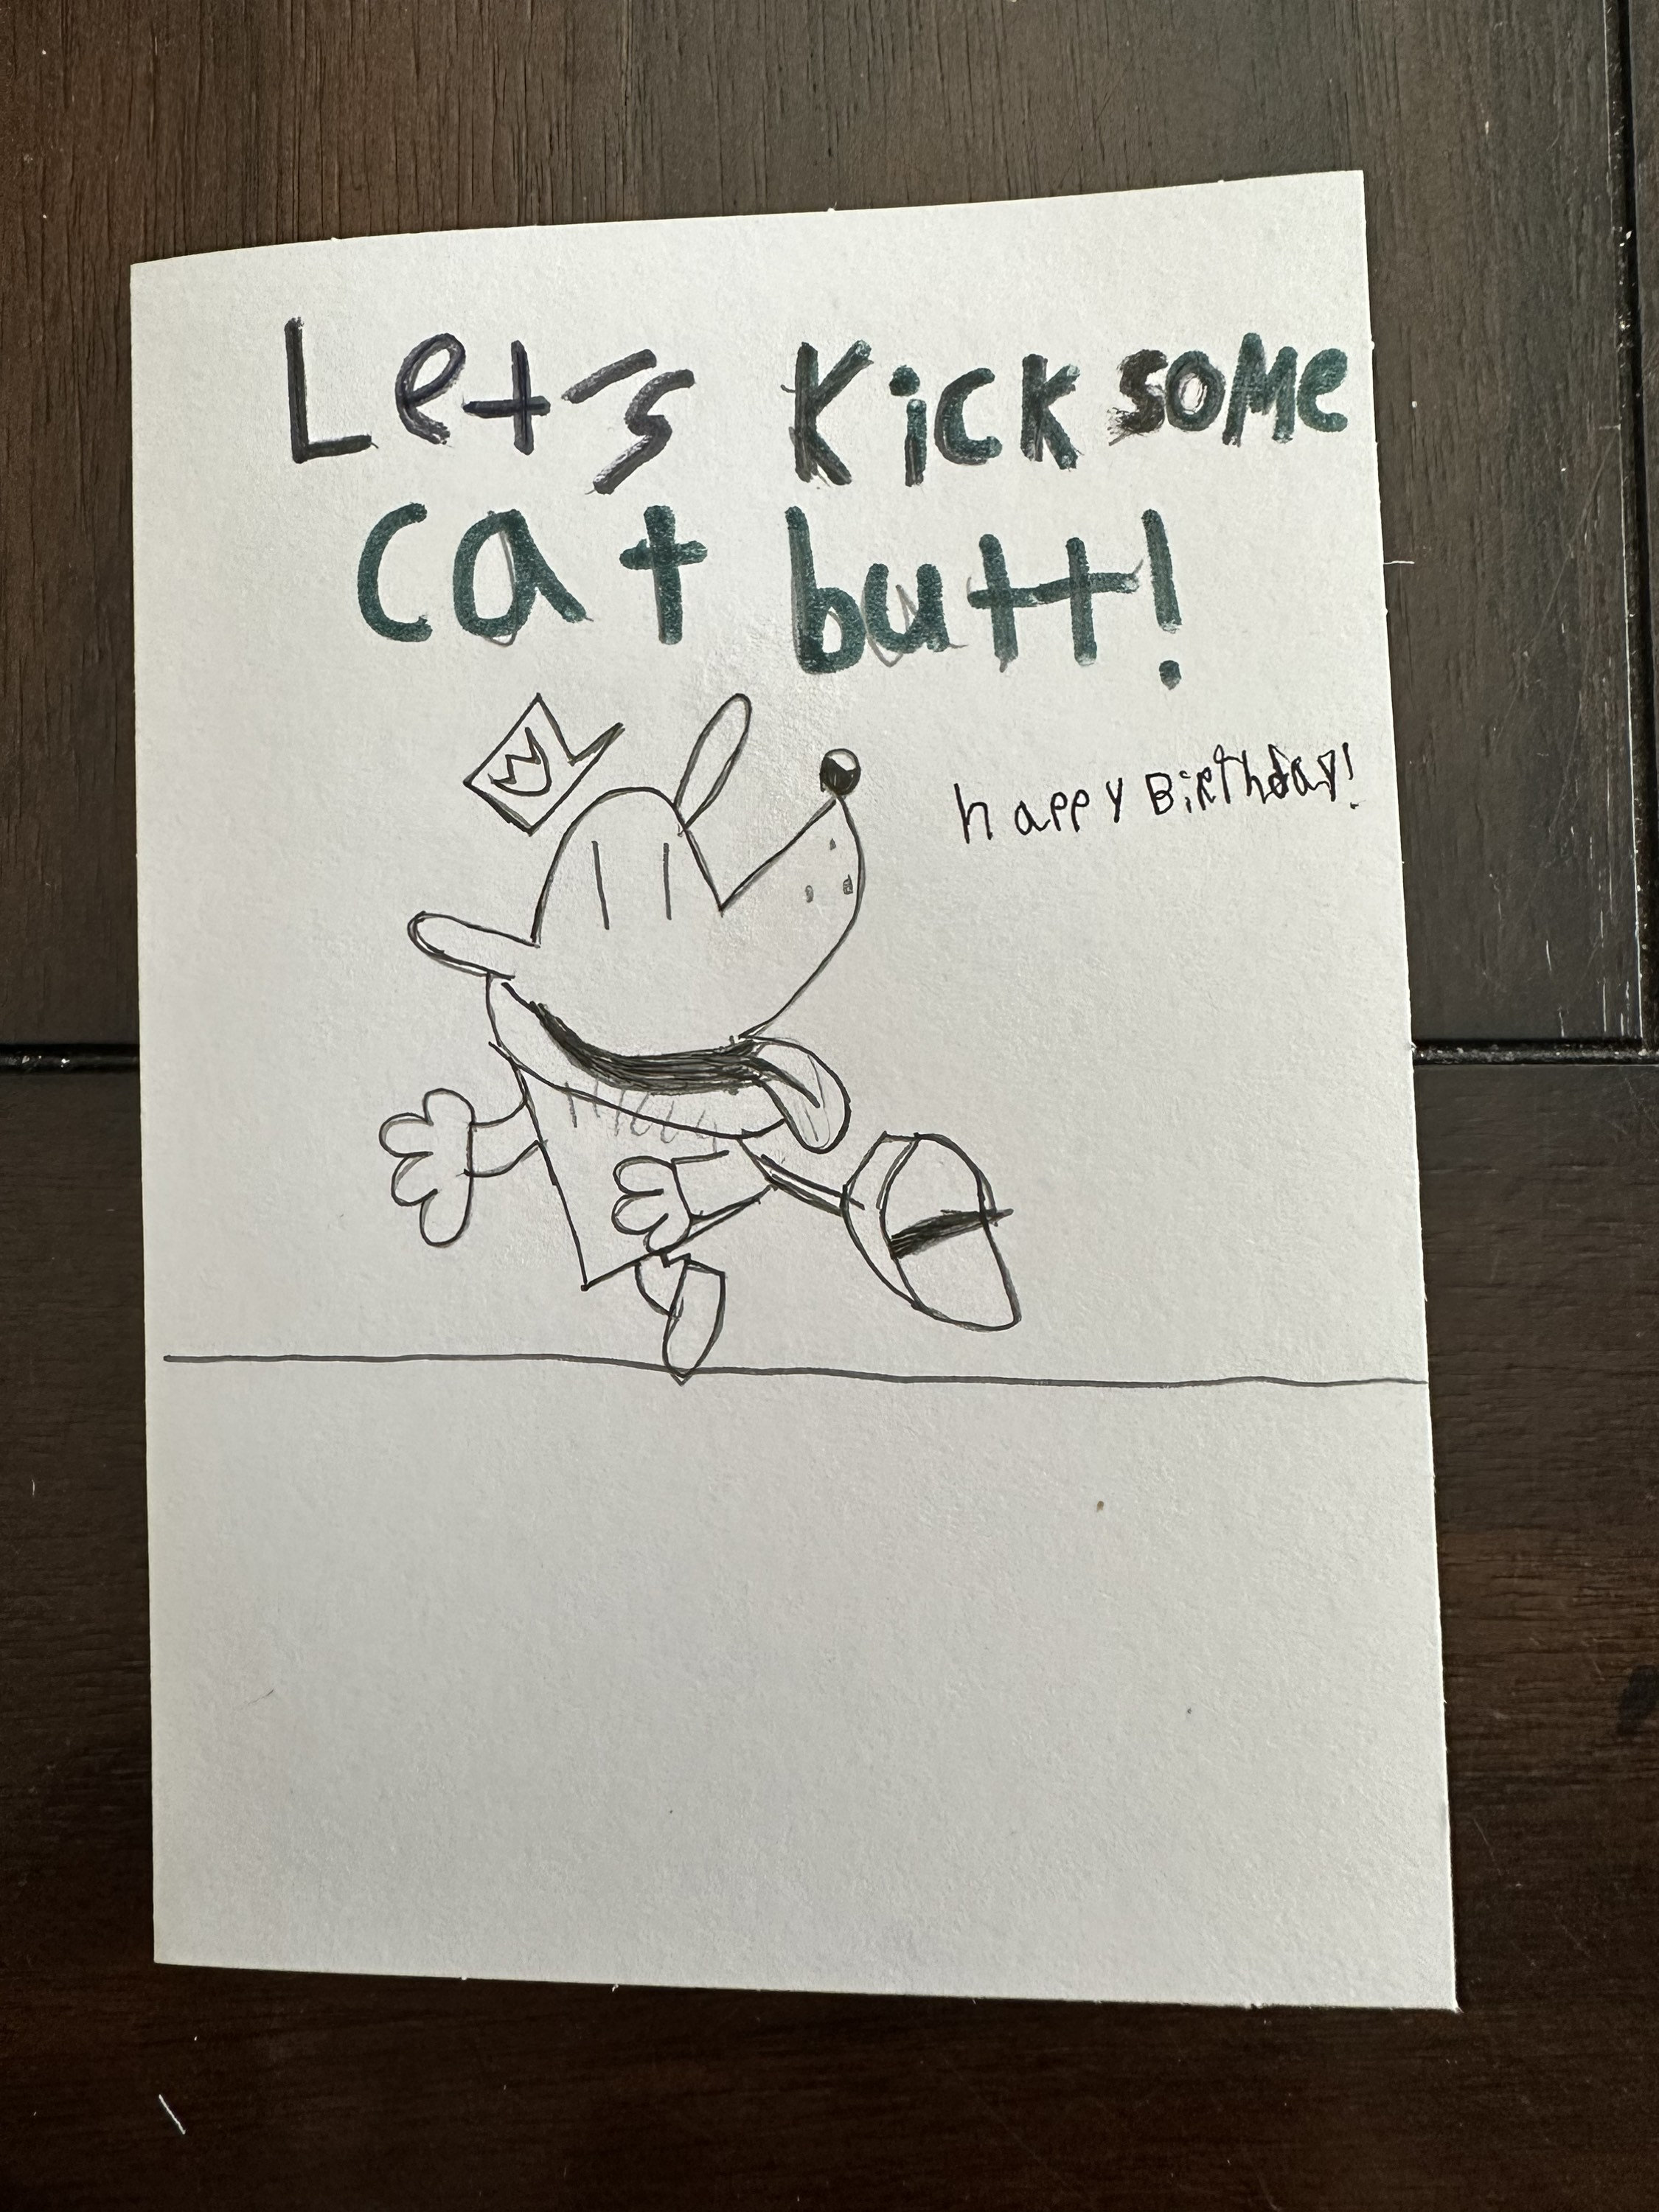 Let's Kick some
cat butt!
happy Birthday!